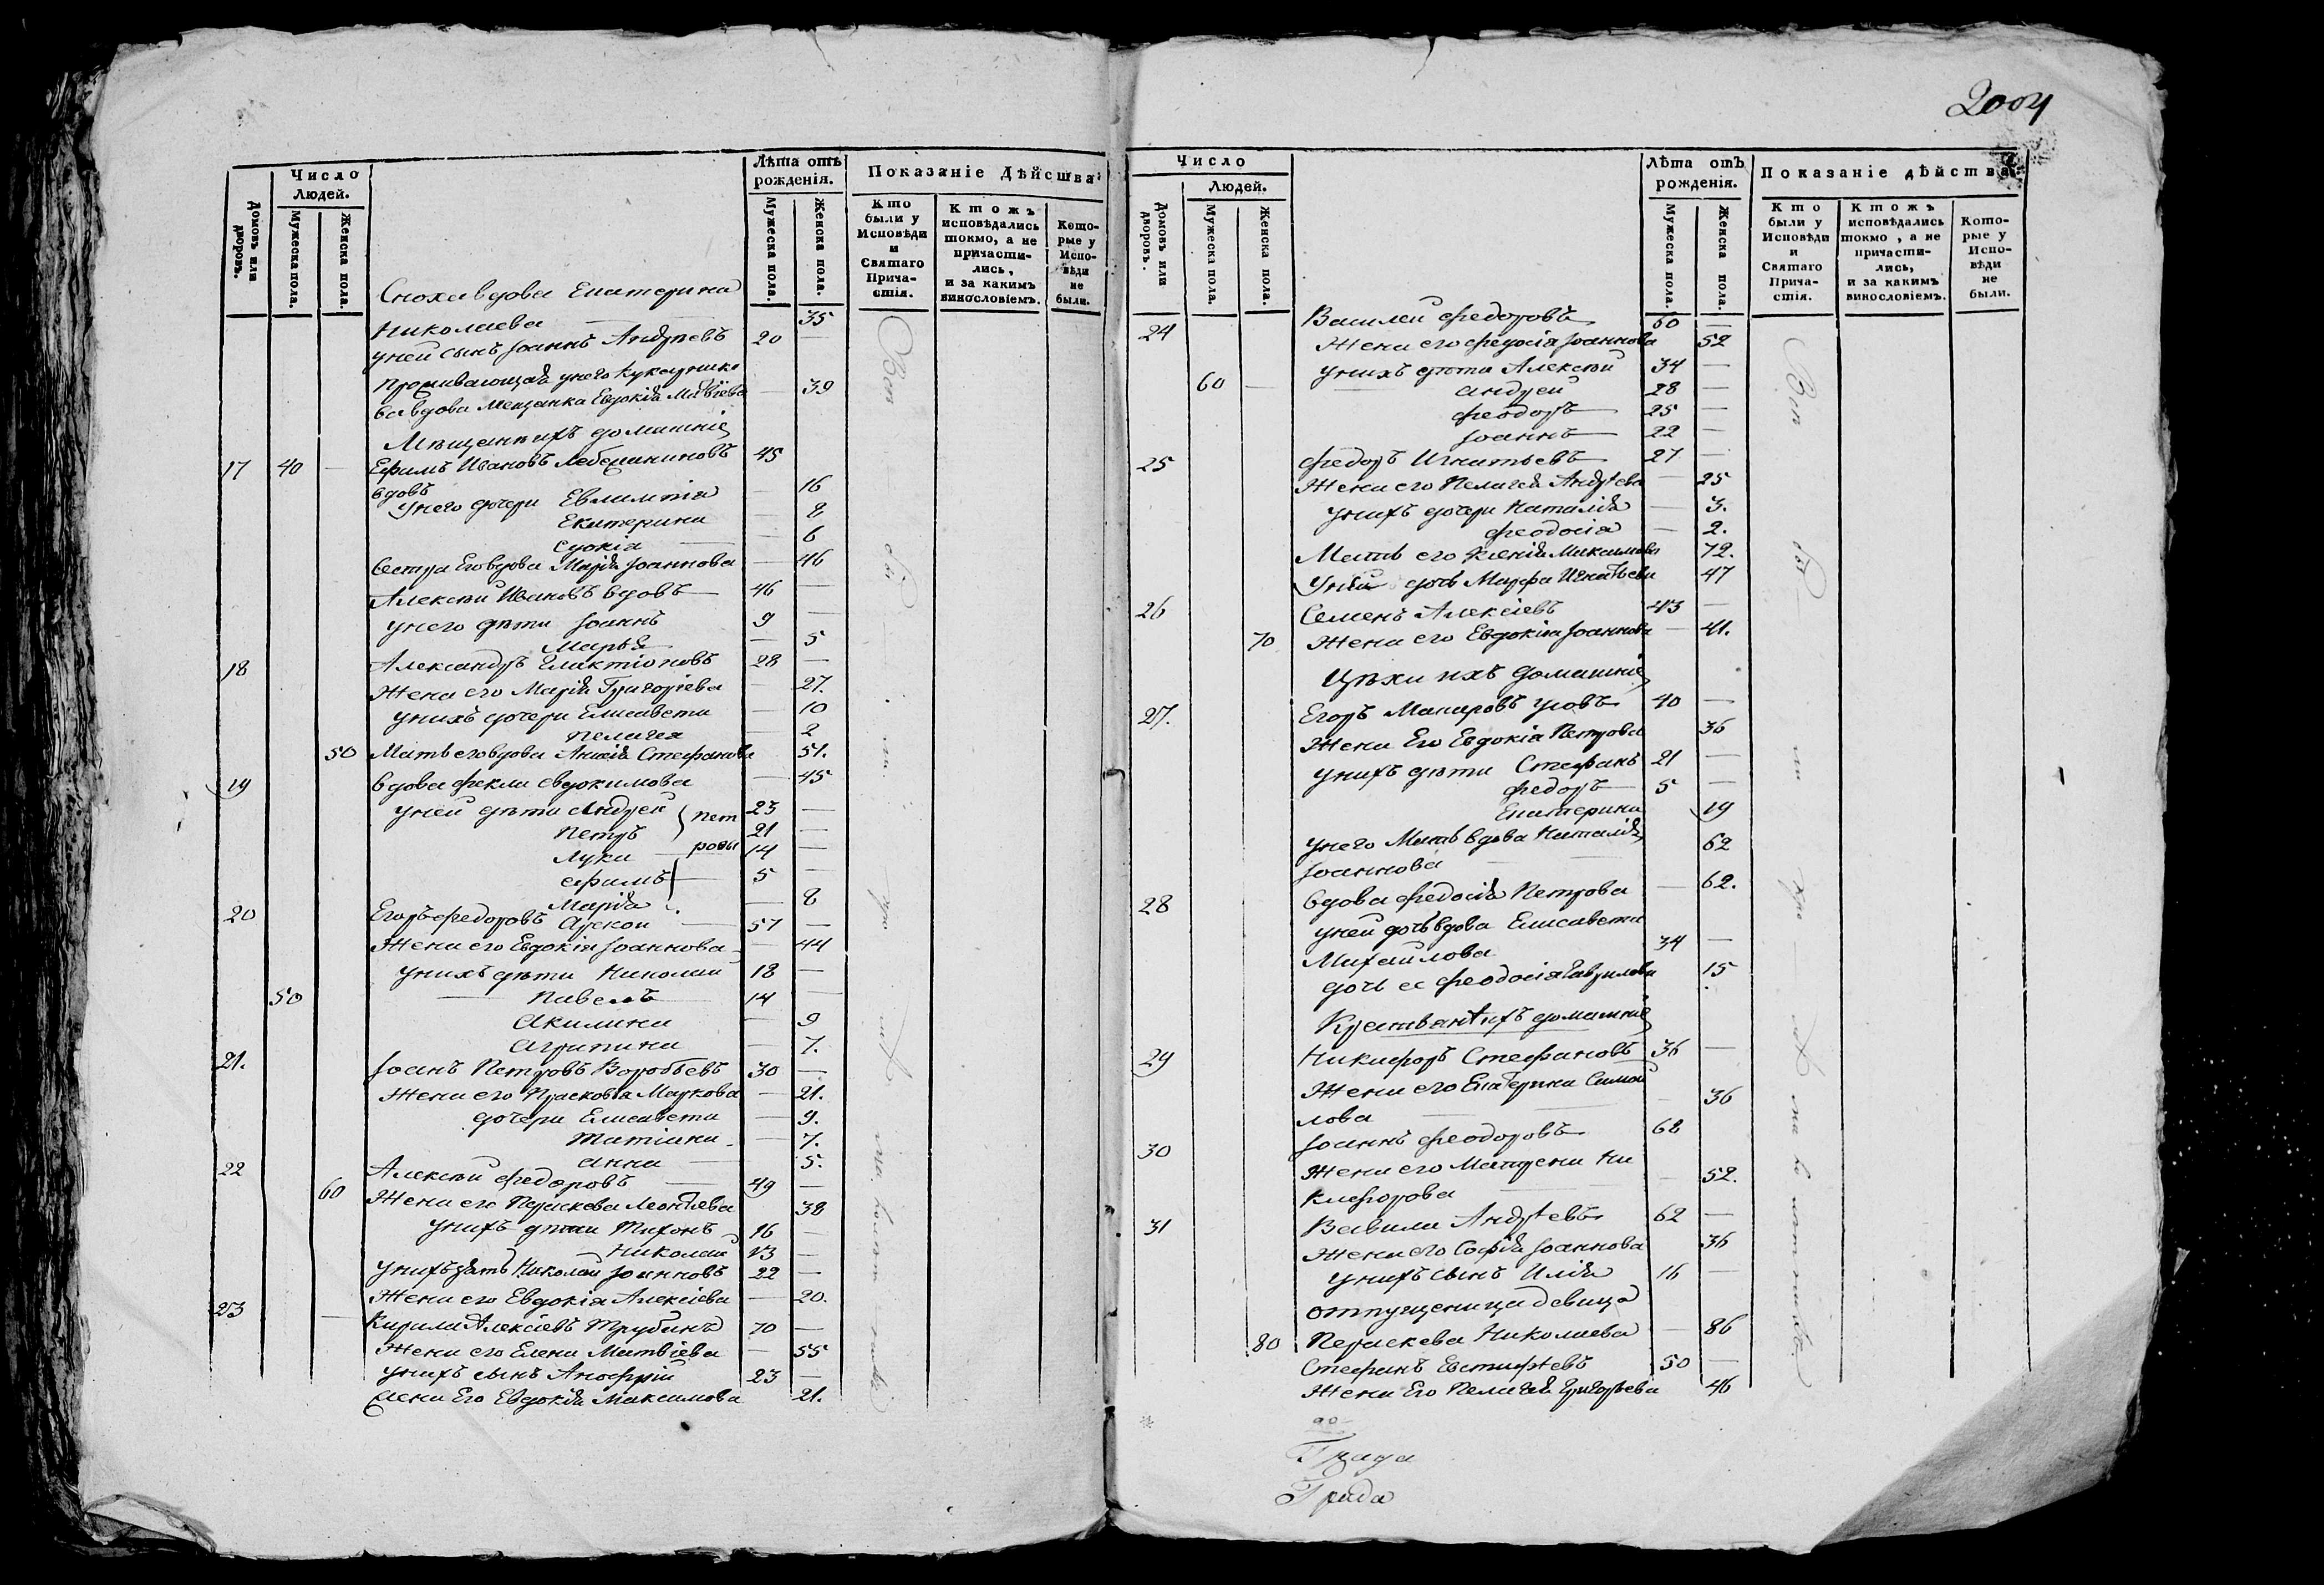 2004
Число
Людей.
Лѣта отъ
рожденія.
Показаніе Дѣйства.
Домовъ или
дворовъ.
Мужеска пола.
Женска пола.
Мужеска пола.
Женска пола.
Кто
были у
Исповѣди
и
Святаго
Прича-
стія.
Ктожъ
исповѣдались
токмо, а не
причасти-
лись,
и за какимъ
винословіемъ.
Кото-
рые у
Испо-
вѣди
не
были.
Сноха вдова Екатерина
Николаева 35
уней сынъ Іоаннъ Андреевъ 20 —
Проживающая унего
вдова Мещанка Евдокія — 39
Мѣщане ихъ домашніе
17 40 — Ефимъ Ивановъ 45
вдовъ
Унего дочери Евлампія — 16
Екатерина — 8
Евдокія — 6
Сестра Его вдова Марія Іоаннова — 46
Алексѣй Ивановъ вдовъ 46 —
унего дѣти Іоаннъ 9 —
Марья — 5
18 Александръ Галактіоновъ 28 —
Жена его Марія Григоріева — 27.
унихъ дочери Елисавета — 10
Пелагея 2
50 Мать его вдова Стефанова 51.
19 вдова Фекла Евдокимова — 45
уней дѣти Андрей 23 —
Петръ 21 —
Лука 14 —
Ефимъ 5 —
Марія — 8
Петровы
20 Егоръ Федоровъ 57 —
Жена его Евдокія Іоаннова — 44
унихъ дѣти Николай 18 —
50 Павелъ 14 —
Акилина — 9
Агрипина — 7.
21. Іоанъ Петровъ Воробьевъ 30 —
Жена его Прасковья Маркова — 21.
дочери Елисавета — 9.
Татіана — 7.
Анна — 5.
22 Алексѣй Федоровъ 49 —
60 Жена его Параскева Леонтьева 38
унихъ дѣти Тихонъ 16 —
Николай 13 —
унихъ зять Николай Іоанновъ 22 —
Жена его Евдокія Алексіева — 20.
23 — Кирила Алексіевъ Трубинъ 70 —
Жена его Елена Матвіева — 55
унихъ сынъ 23 —
Жена Его Евдокія Максимова 21.
Число
Людей.
Лѣта отъ
рожденія.
Показаніе дѣйства.
Домовъ или
дворовъ.
Мужеска пола.
Женска пола.
Мужеска пола.
Женска пола.
Кто
были у
Исповѣди
и
Святаго
Прича-
стія.
Ктожъ
исповѣдались
токмо, а не
причасти-
лись,
и за какимъ
винословіемъ.
Кото-
рые у
Испо-
вѣди
не
были.
24 Василей Федоровъ 60 —
Жена его Федосія Іоаннова 52
60 — унихъ дѣти Алексѣй 34 —
Андрей 28 —
Феодоръ 25 —
Іоаннъ 22 —
25 Федоръ Игнатьевъ 27 —
Жена его Пелагея Андрѣева — 25
унихъ дочери Наталія — 3.
Феодосія — 2.
Мать его Ксенія Максимова 72.
Уней дочь Марфа Игнатьева 47
26 Семенъ Алексіевъ 43 —
70 Жена его Евдокія Іоаннова — 41.
Цѣхи ихъ домашніе
27. Егоръ Макаровъ 40 —
Жена Его Евдокія Петрова 36
унихъ дѣти Стефанъ 21 —
Федоръ 5 —
Екатерина 19
унего Мать вдова Наталія
Іоаннова 62
28 вдова Федосія Петрова — 62.
уней дочь вдова Елисавета
Михайлова 34 —
дочь ее Феодосія Гаврилова 15
Крестьяне ихъ домашніе
29 Никифоръ Стефановъ 36 —
Жена его Екатерина Самой
лова — 36
30 Іоаннъ Феодоровъ 68
Жена его Матрена Ни
кифорова — 52.
31 Вавила Андрѣевъ 62 —
Жена его Софія Іоаннова 36
унихъ сынъ Илія 16 —
отпущеница девица
80 Параскева Николаева — 86
Стефанъ Евстифѣевъ 50 —
Жена Его Пелагея Григорьева 46
Града
Града